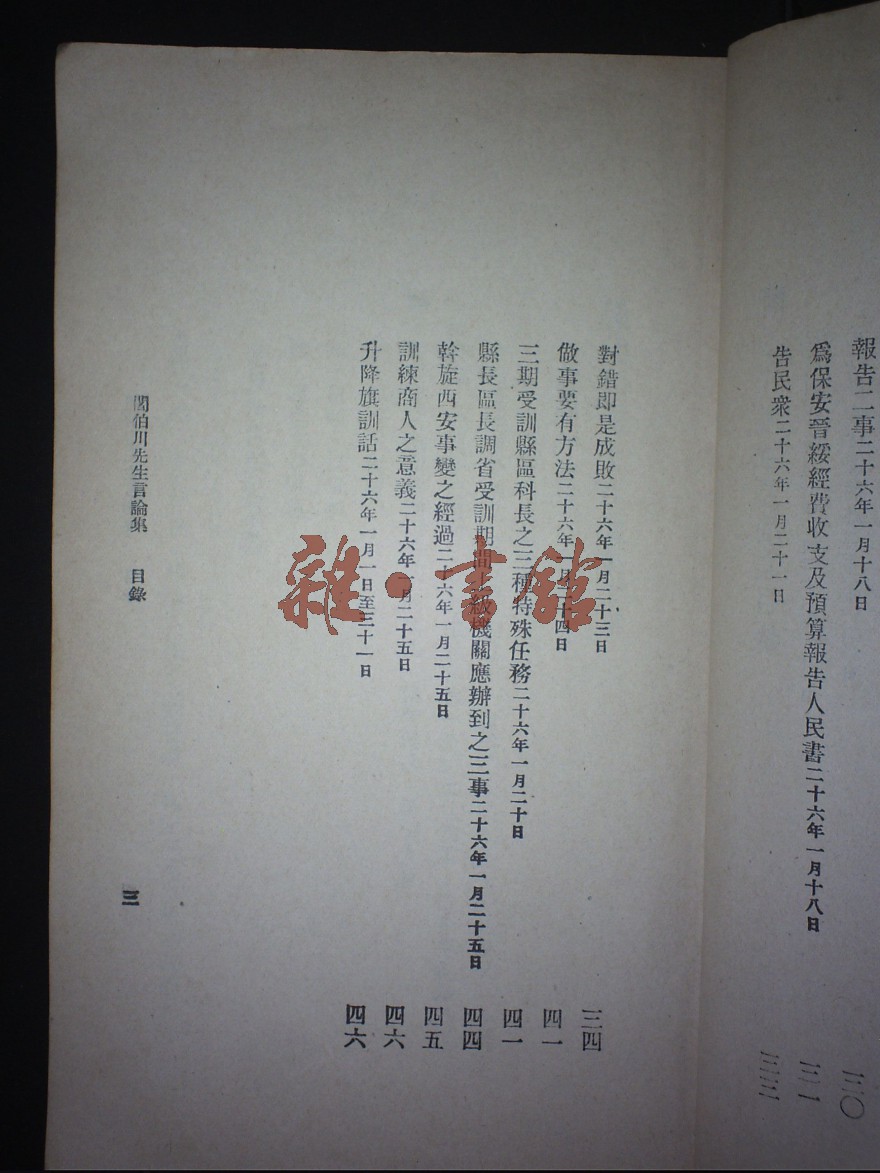 報告二事二十六年一月十八日 三〇
爲保安晉綏經費收支及預算報告人民書二十六年一月十八日
告民衆二十六年一月二十一日
對錯即是成敗二十六年一月二十三日 三四
做事要有方法二十六年一月二十四日 四一
三期受訓縣區科長之三種特殊任務二十六年一月二十日 四一
縣長區長調省受訓期間上級機關應辦到之三事二十六年一月二十五日 四四
斡旋西安事變之經過二十六年一月二十五日 四五
訓練商人之意義二十六年一月二十五日 四六
升降旗訓話二十六年一月一日至三十一日 四六
閻伯川先生言論集 目錄 三
雜·書館